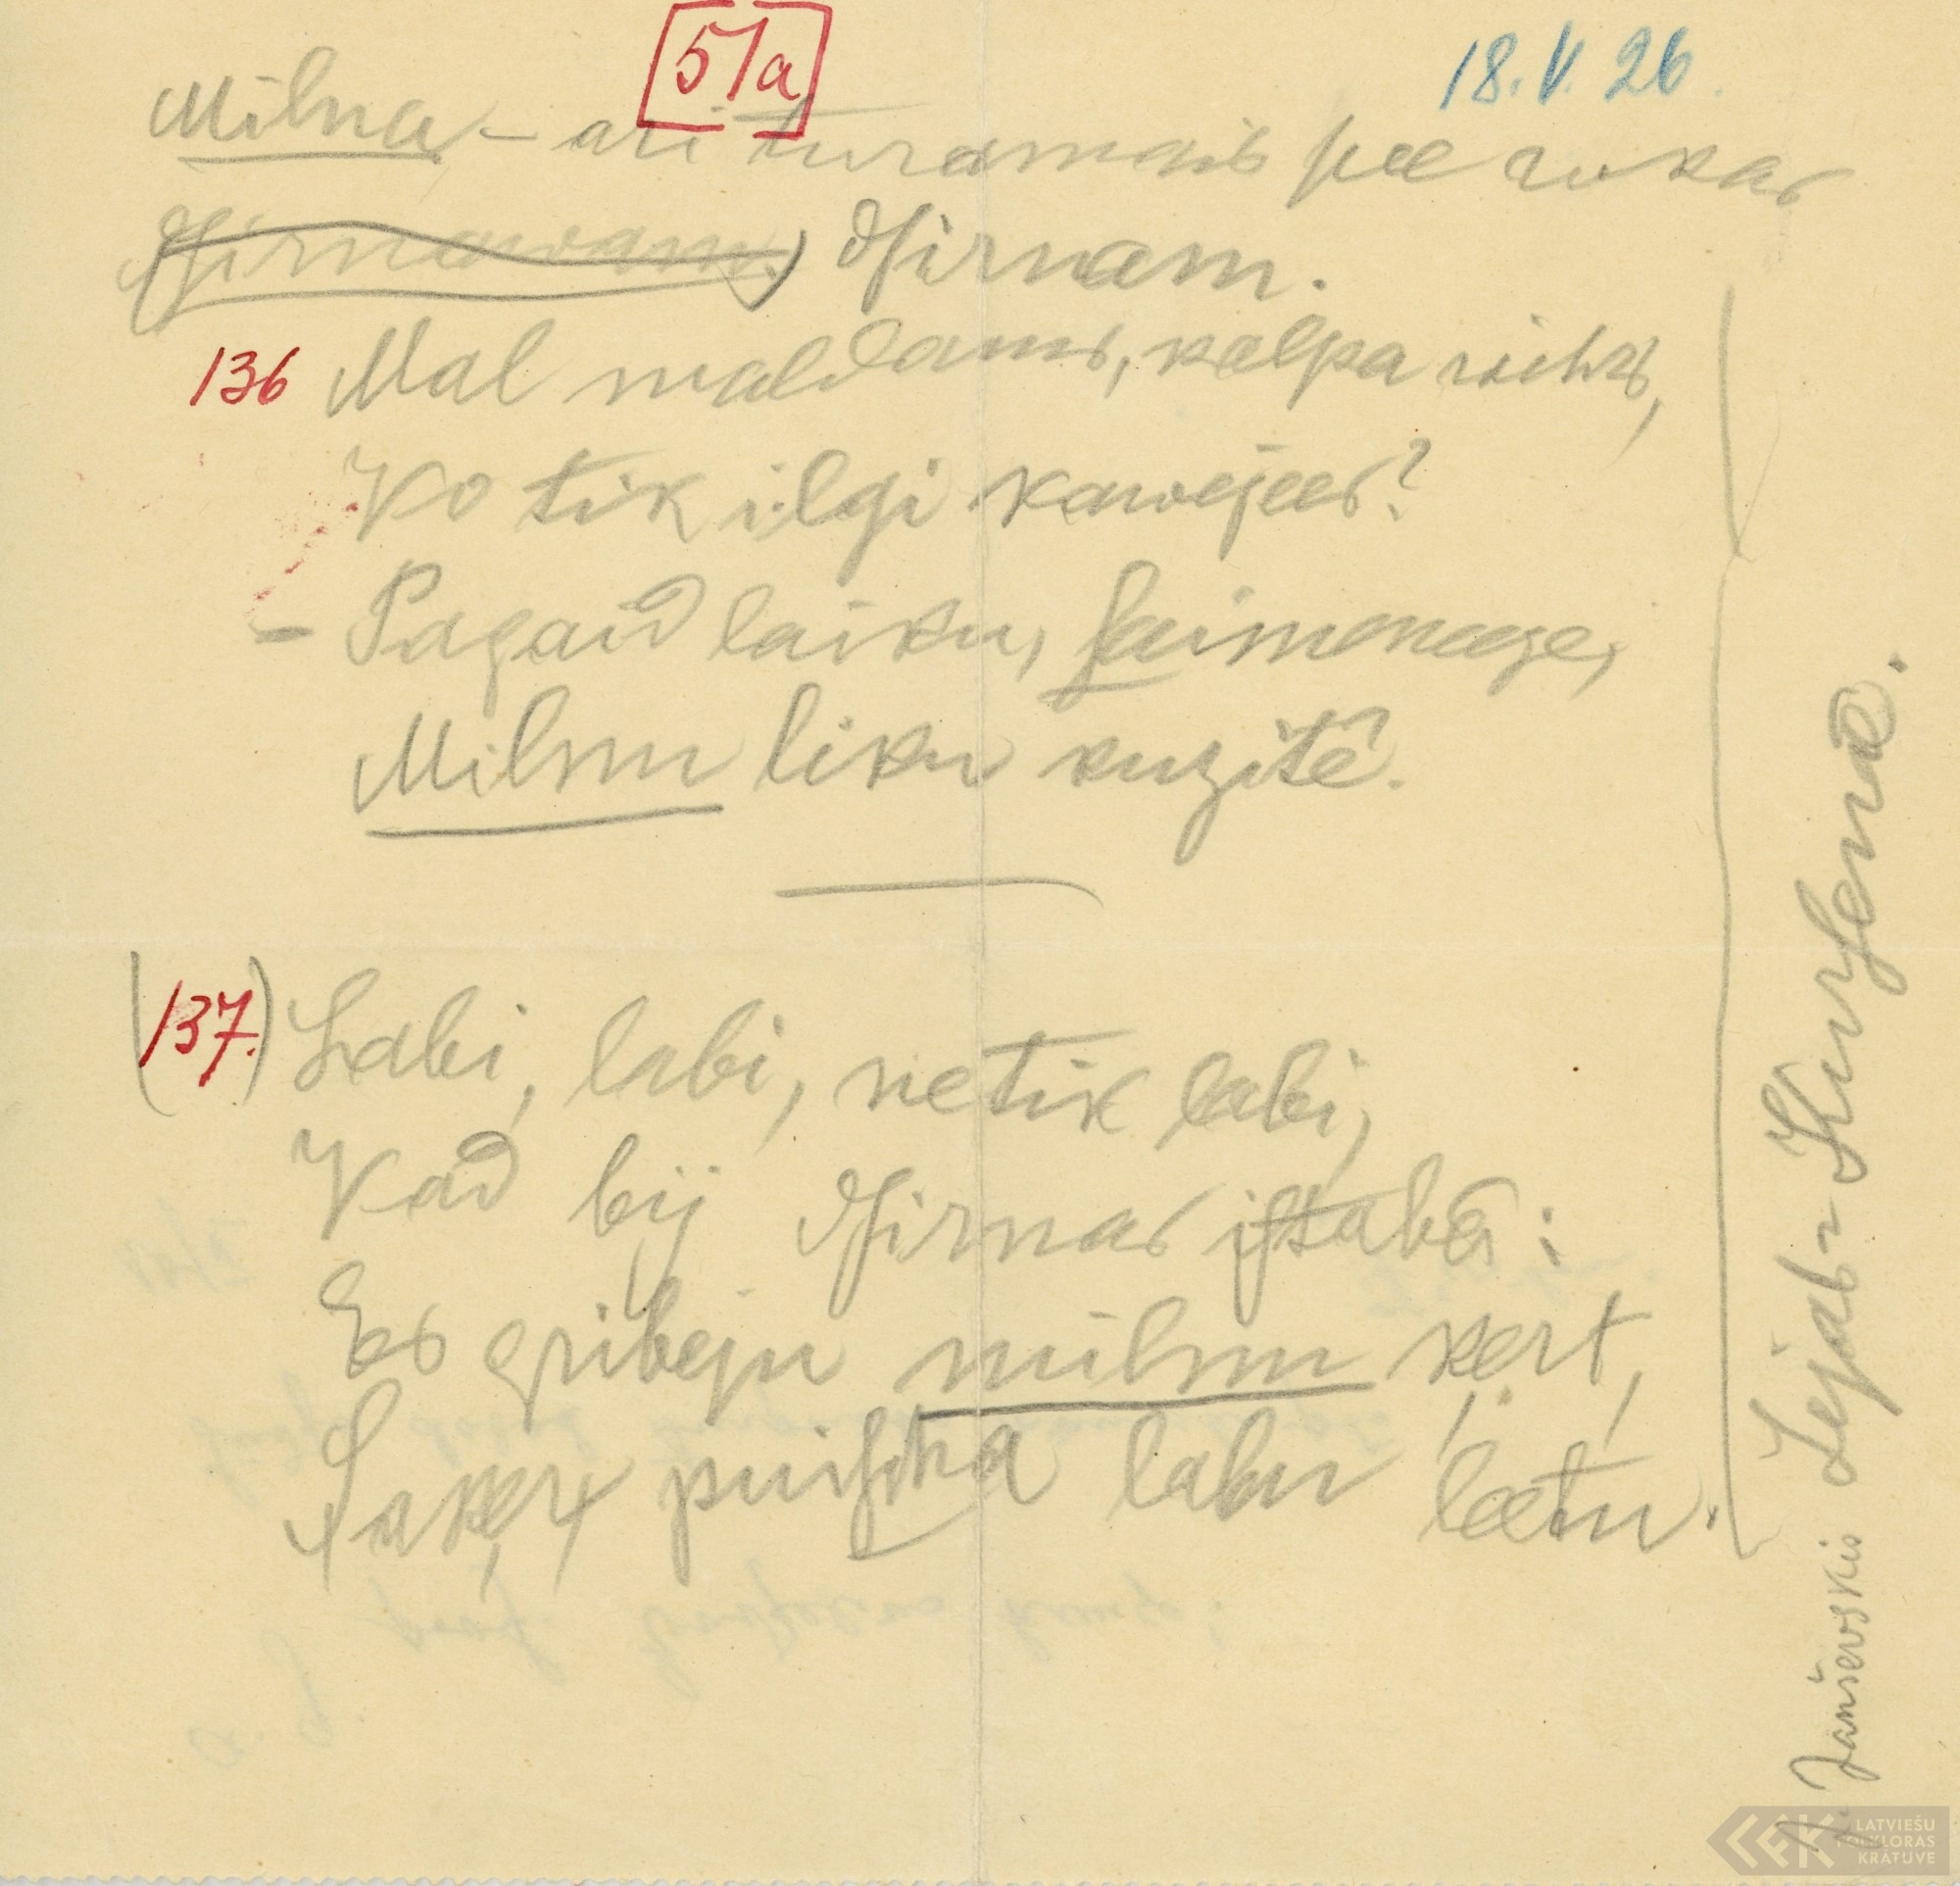 51a
18.V.26.
Milna – ari turamais pee rokas
dsirnawam. dsirnam.
136 Mal maldams, kalpa wihrs,
Ko tik ilgi kawejees?
– Pagaid laiku, saimeneeze,
Milnu liku kuzitê.
(137.) Labi, labi, netik labi,
Kad bij dsirnas istabâ:
Es gribeju milnu ķert,
Saķer puischa labu leetu.
Janševskis Lejas-Kursemê.
LATVIEŠU
FOLKLORAS
KRĀTUVE